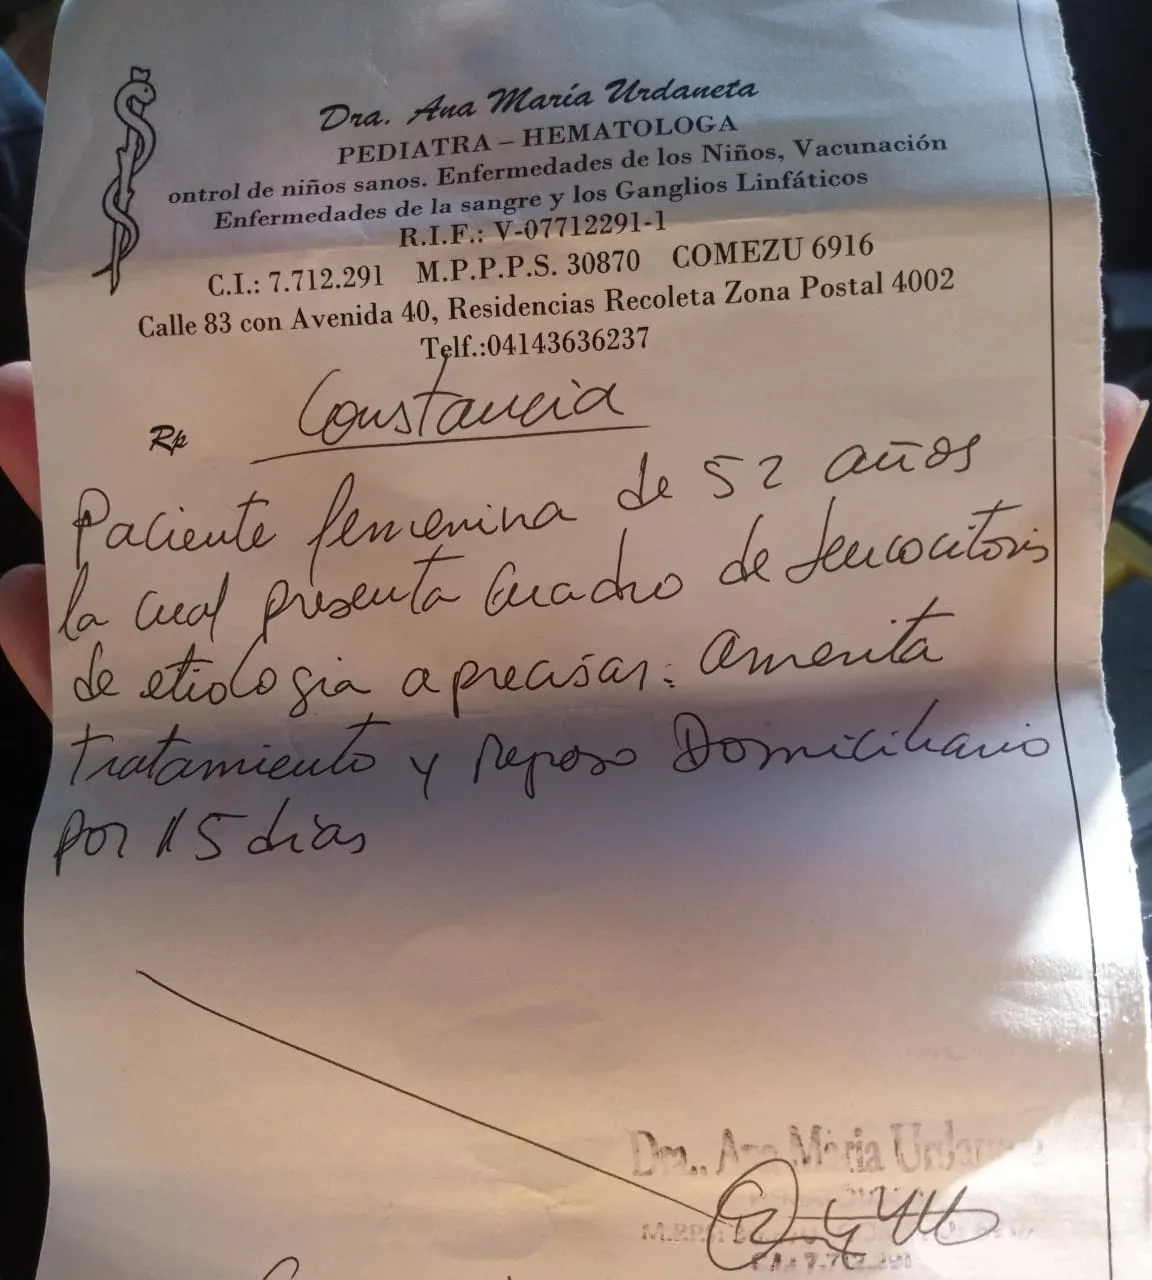 Dra. Ana María Urdaneta
PEDIATRA – HEMATOLOGA
ontrol de niños sanos. Enfermedades de los Niños, Vacunación
Enfermedades de la sangre y los Ganglios Linfáticos
R.I.F.: V-07712291-1
C.I.: 7.712.291 M.P.P.P.S. 30870 COMEZU 6916
Calle 83 con Avenida 40, Residencias Recoleta Zona Postal 4002
Telf.:04143636237
Rp Constancia
Paciente femenina de 52 años
la cual presenta Cuadro de Leucocitosis
de etiologia a precisar: amerita
tratamiento y reposo Domiciliario
por 15 dias
Dra. Ana Maria Urdaneta
C.I.: 7.712.291